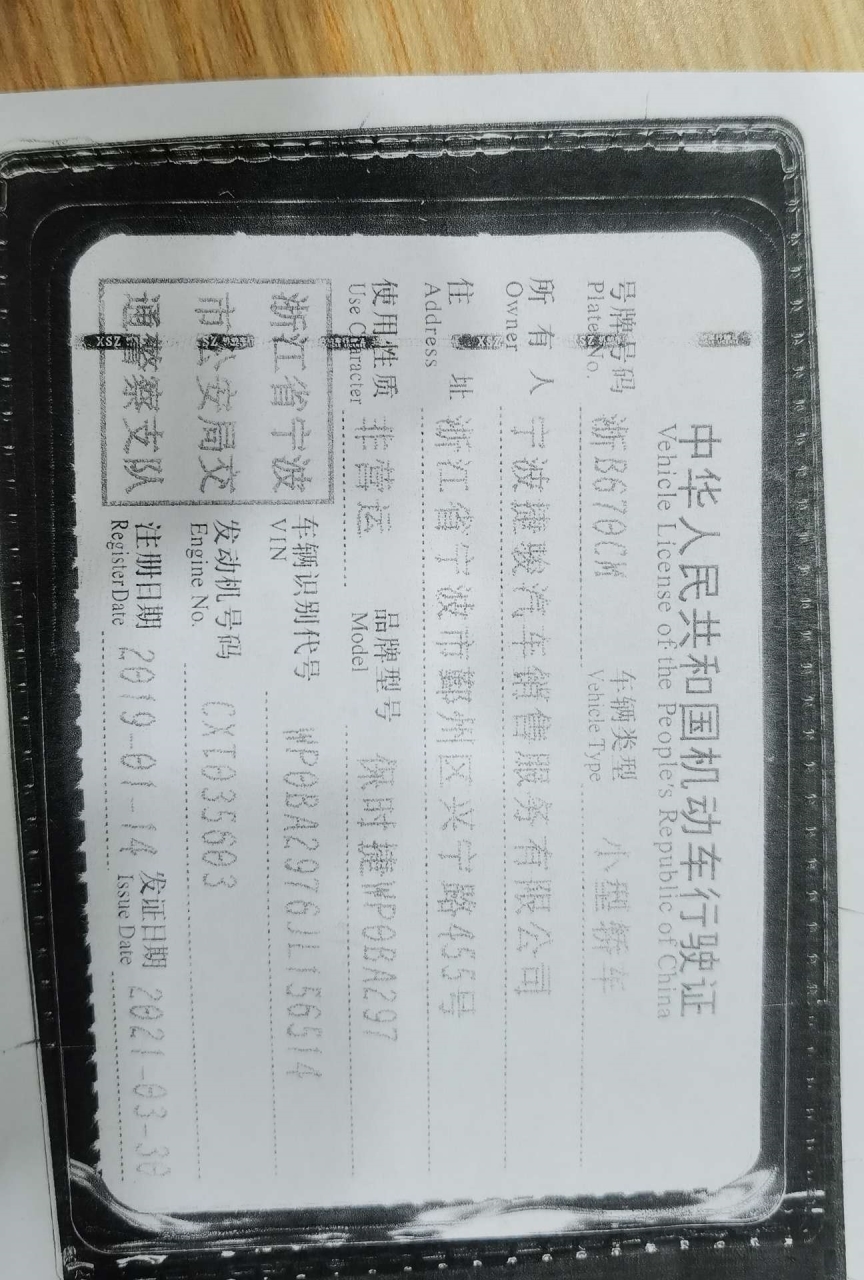 中华人民共和国机动车行驶证
Vehicle License of the People's Republic of China
号牌号码 浙B670CM 车辆类型 小型轿车
Plate No. Vehicle Type
所有人 宁波捷骏汽车销售服务有限公司
Owner
住址 浙江省宁波市鄞州区兴宁路455号
Address
使用性质 非营运 品牌型号 保时捷WP0BA297
Use Character Model
浙江省宁波
市公安局交
通警察支队
车辆识别代号 WP0BA2976JL156514
VIN
发动机号码 CXT035603
Engine No.
注册日期 2019-01-14 发证日期 2021-03-30
Register Date Issue Date